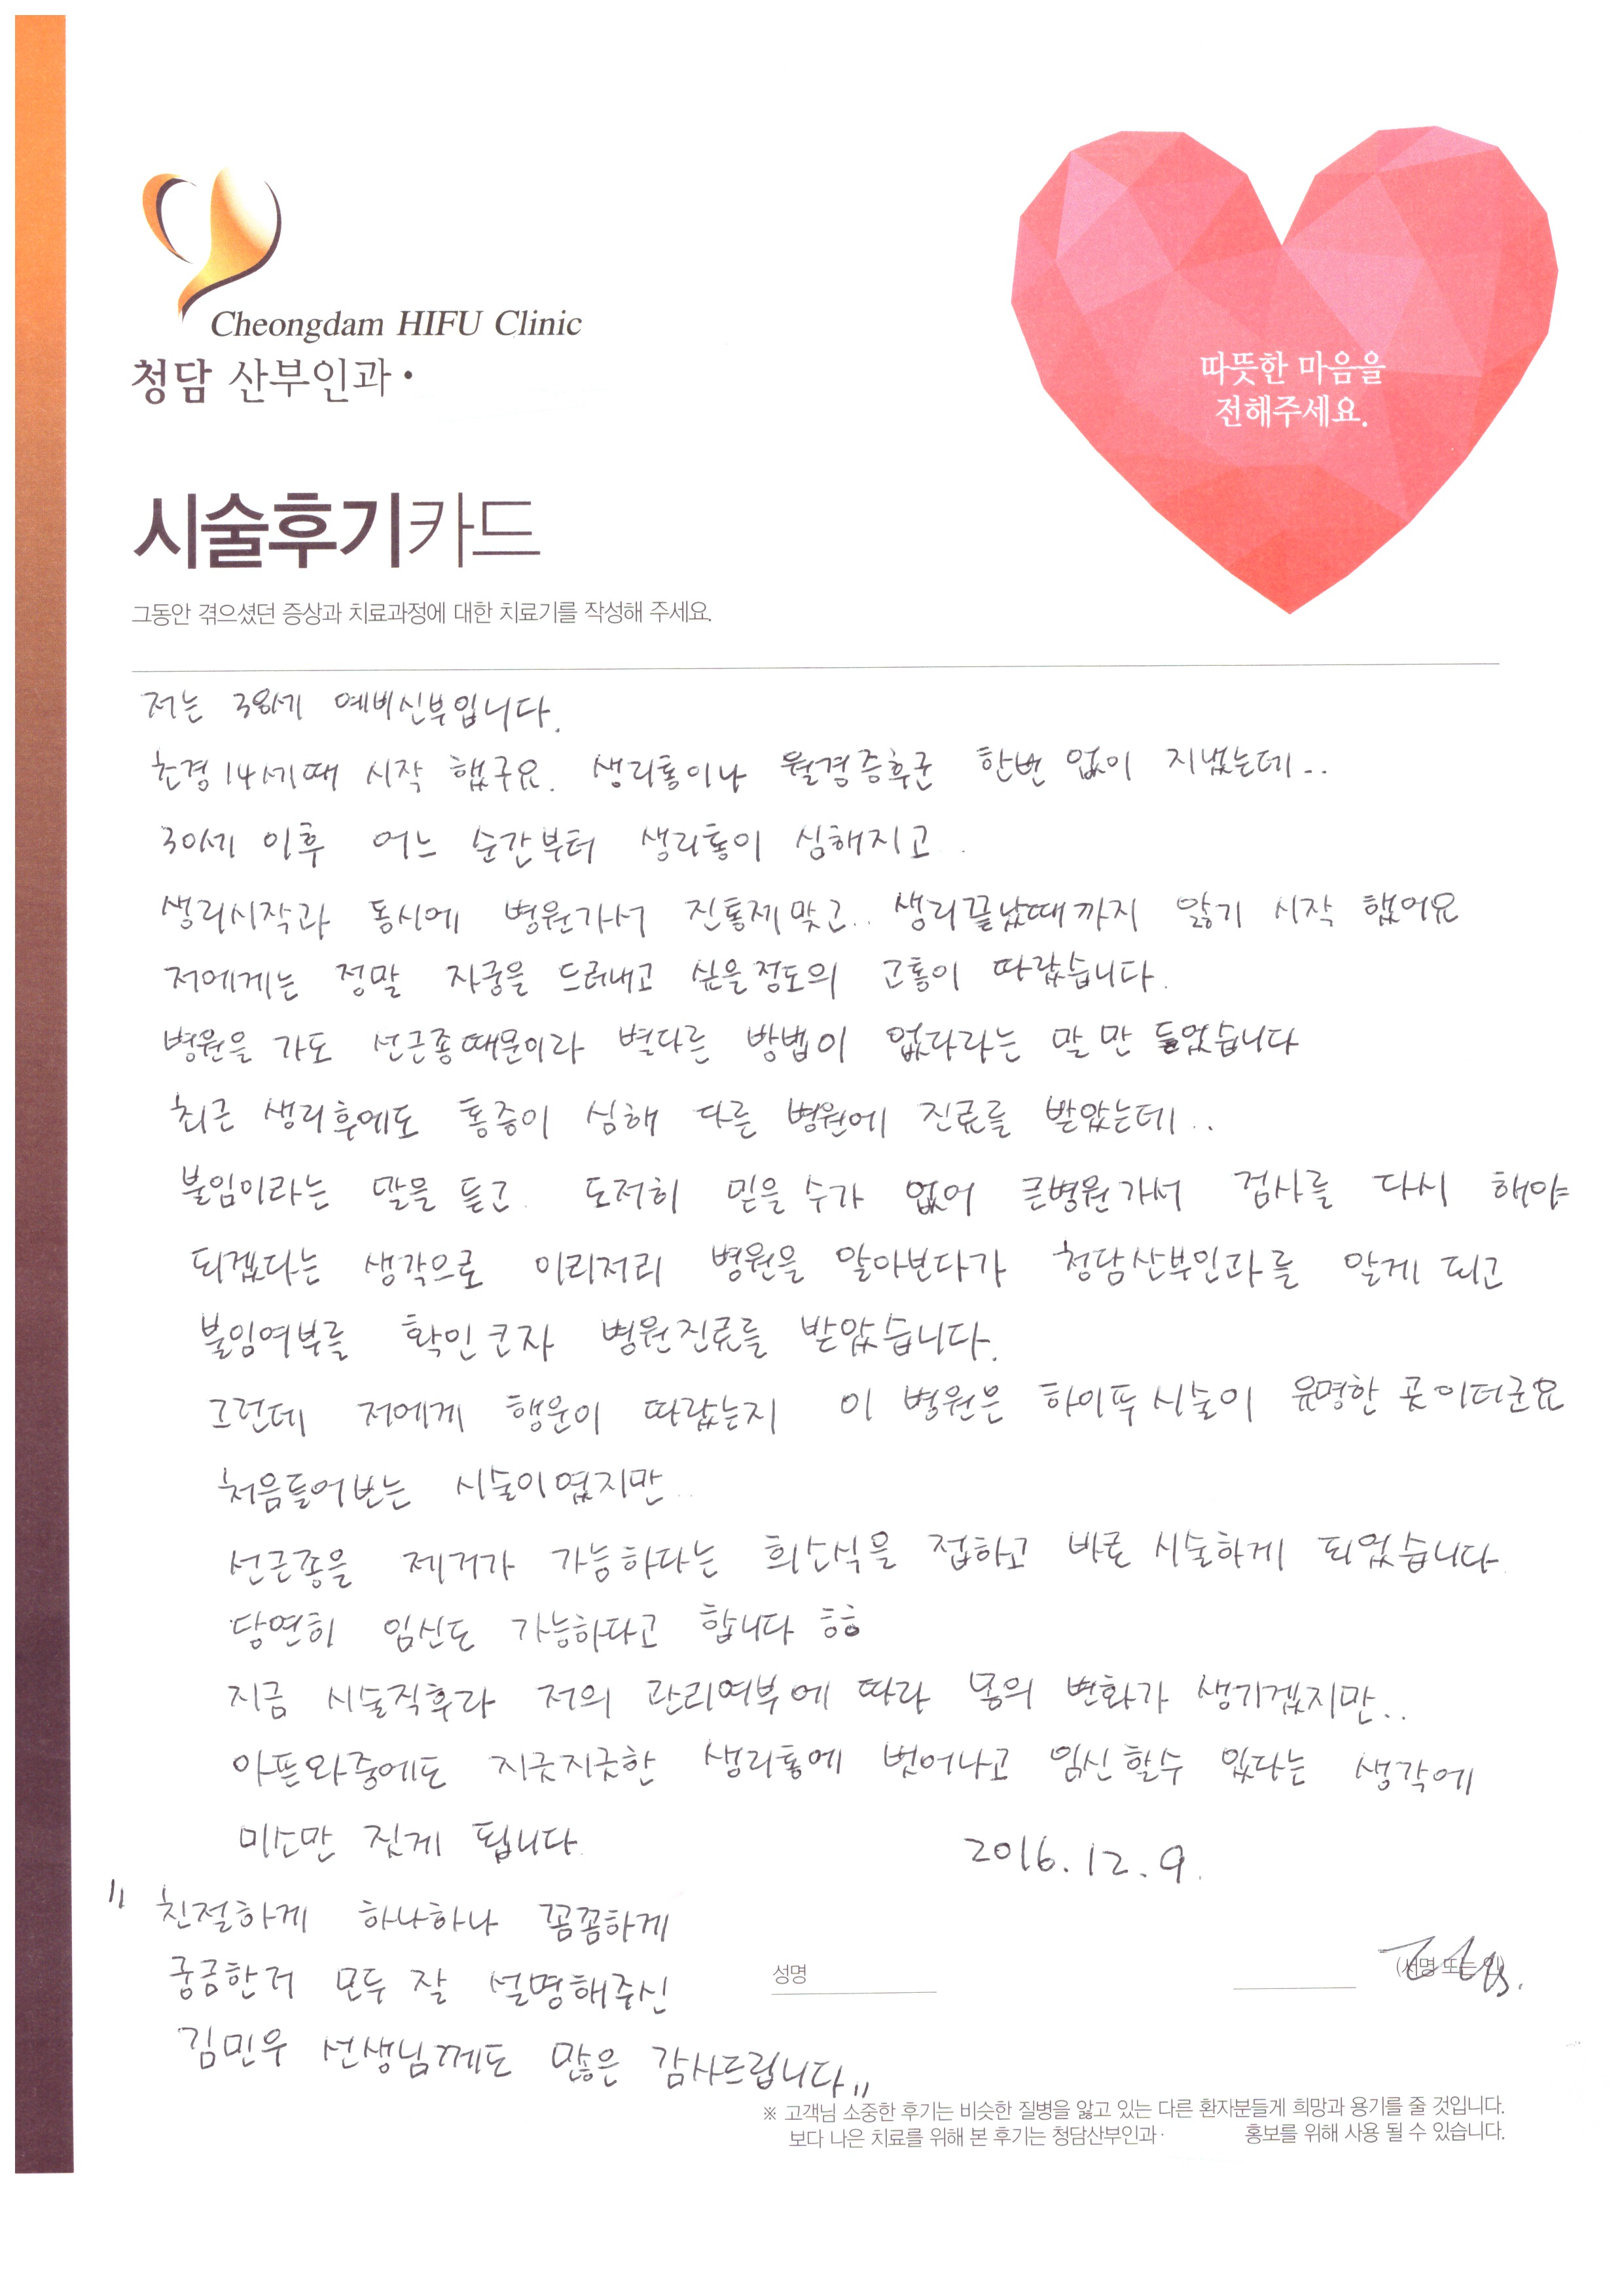 Cheongdam HIFU Clinic
청담 산부인과·
따뜻한 마음을
전해주세요.
시술후기카드
그동안 겪으셨던 증상과 치료과정에 대한 치료기를 작성해 주세요.
저는 38세 예비신부입니다.
초경 14세때 시작 했구요. 생리통이나 월경증후군 한번 없이 지냈는데..
30세 이후 어느 순간부터 생리통이 심해지고
생리시작과 동시에 병원가서 진통제맞고.. 생리끝났때까지 앓기 시작 했어요
저에게는 정말 자궁을 드러내고 싶을정도의 고통이 따랐습니다.
병원을 가도 선근종때문이라 별다른 방법이 없다라는 말만 들었습니다
최근 생리후에도 통증이 심해 다른 병원에 진료를 받았는데..
불임이라는 말을 듣고. 도저히 믿을수가 없어 큰병원가서 검사를 다시 해야
되겠다는 생각으로 이리저리 병원을 알아보다가 청담산부인과를 알게 되고
불임여부를 확인코자 병원진료를 받았습니다.
그런데 저에게 행운이 따랐는지 이 병원은 하이푸시술이 유명한 곳이더군요
처음들어보는 시술이였지만..
선근종을 제거가 가능하다는 희소식을 접하고 바로 시술하게 되었습니다.
당연히 임신도 가능하다고 합니다 ㅎㅎ
지금 시술직후라 저의 관리여부에 따라 몸의 변화가 생기겠지만..
아픈와중에도 지긋지긋한 생리통에 벗어나고 임신할수 있다는 생각에
미소만 짓게 됩니다.
2016.12.9.
"친절하게 하나하나 꼼꼼하게
궁금한거 모두 잘 설명해주신
김민우 선생님께도 많은 감사드립니다"
성명
(서명 또는 인)
※ 고객님 소중한 후기는 비슷한 질병을 앓고 있는 다른 환자분들게 희망과 용기를 줄 것입니다.
보다 나은 치료를 위해 본 후기는 청담산부인과· 홍보를 위해 사용 될 수 있습니다.